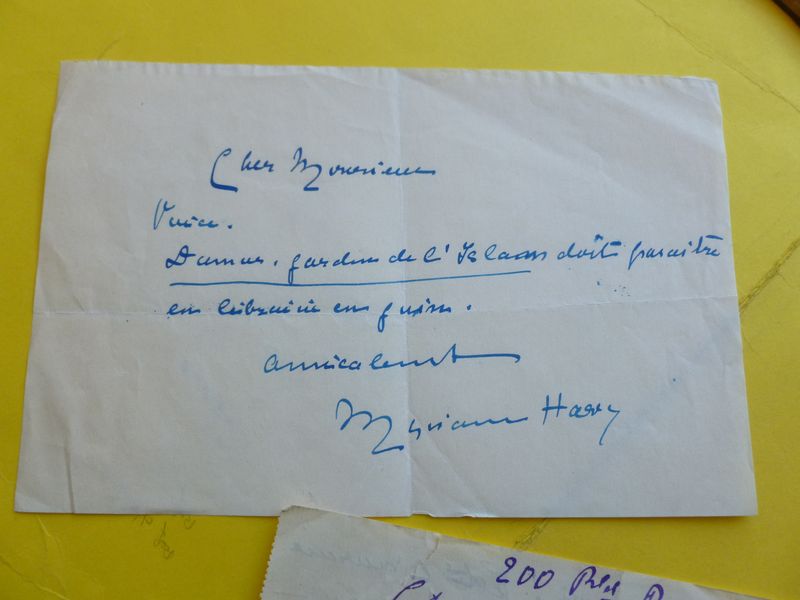 Cher Monsieur
Voici.
Damas, jardin de l'Islam doit paraître
en librairie en juin.
amicalement
Myriam Harry
200